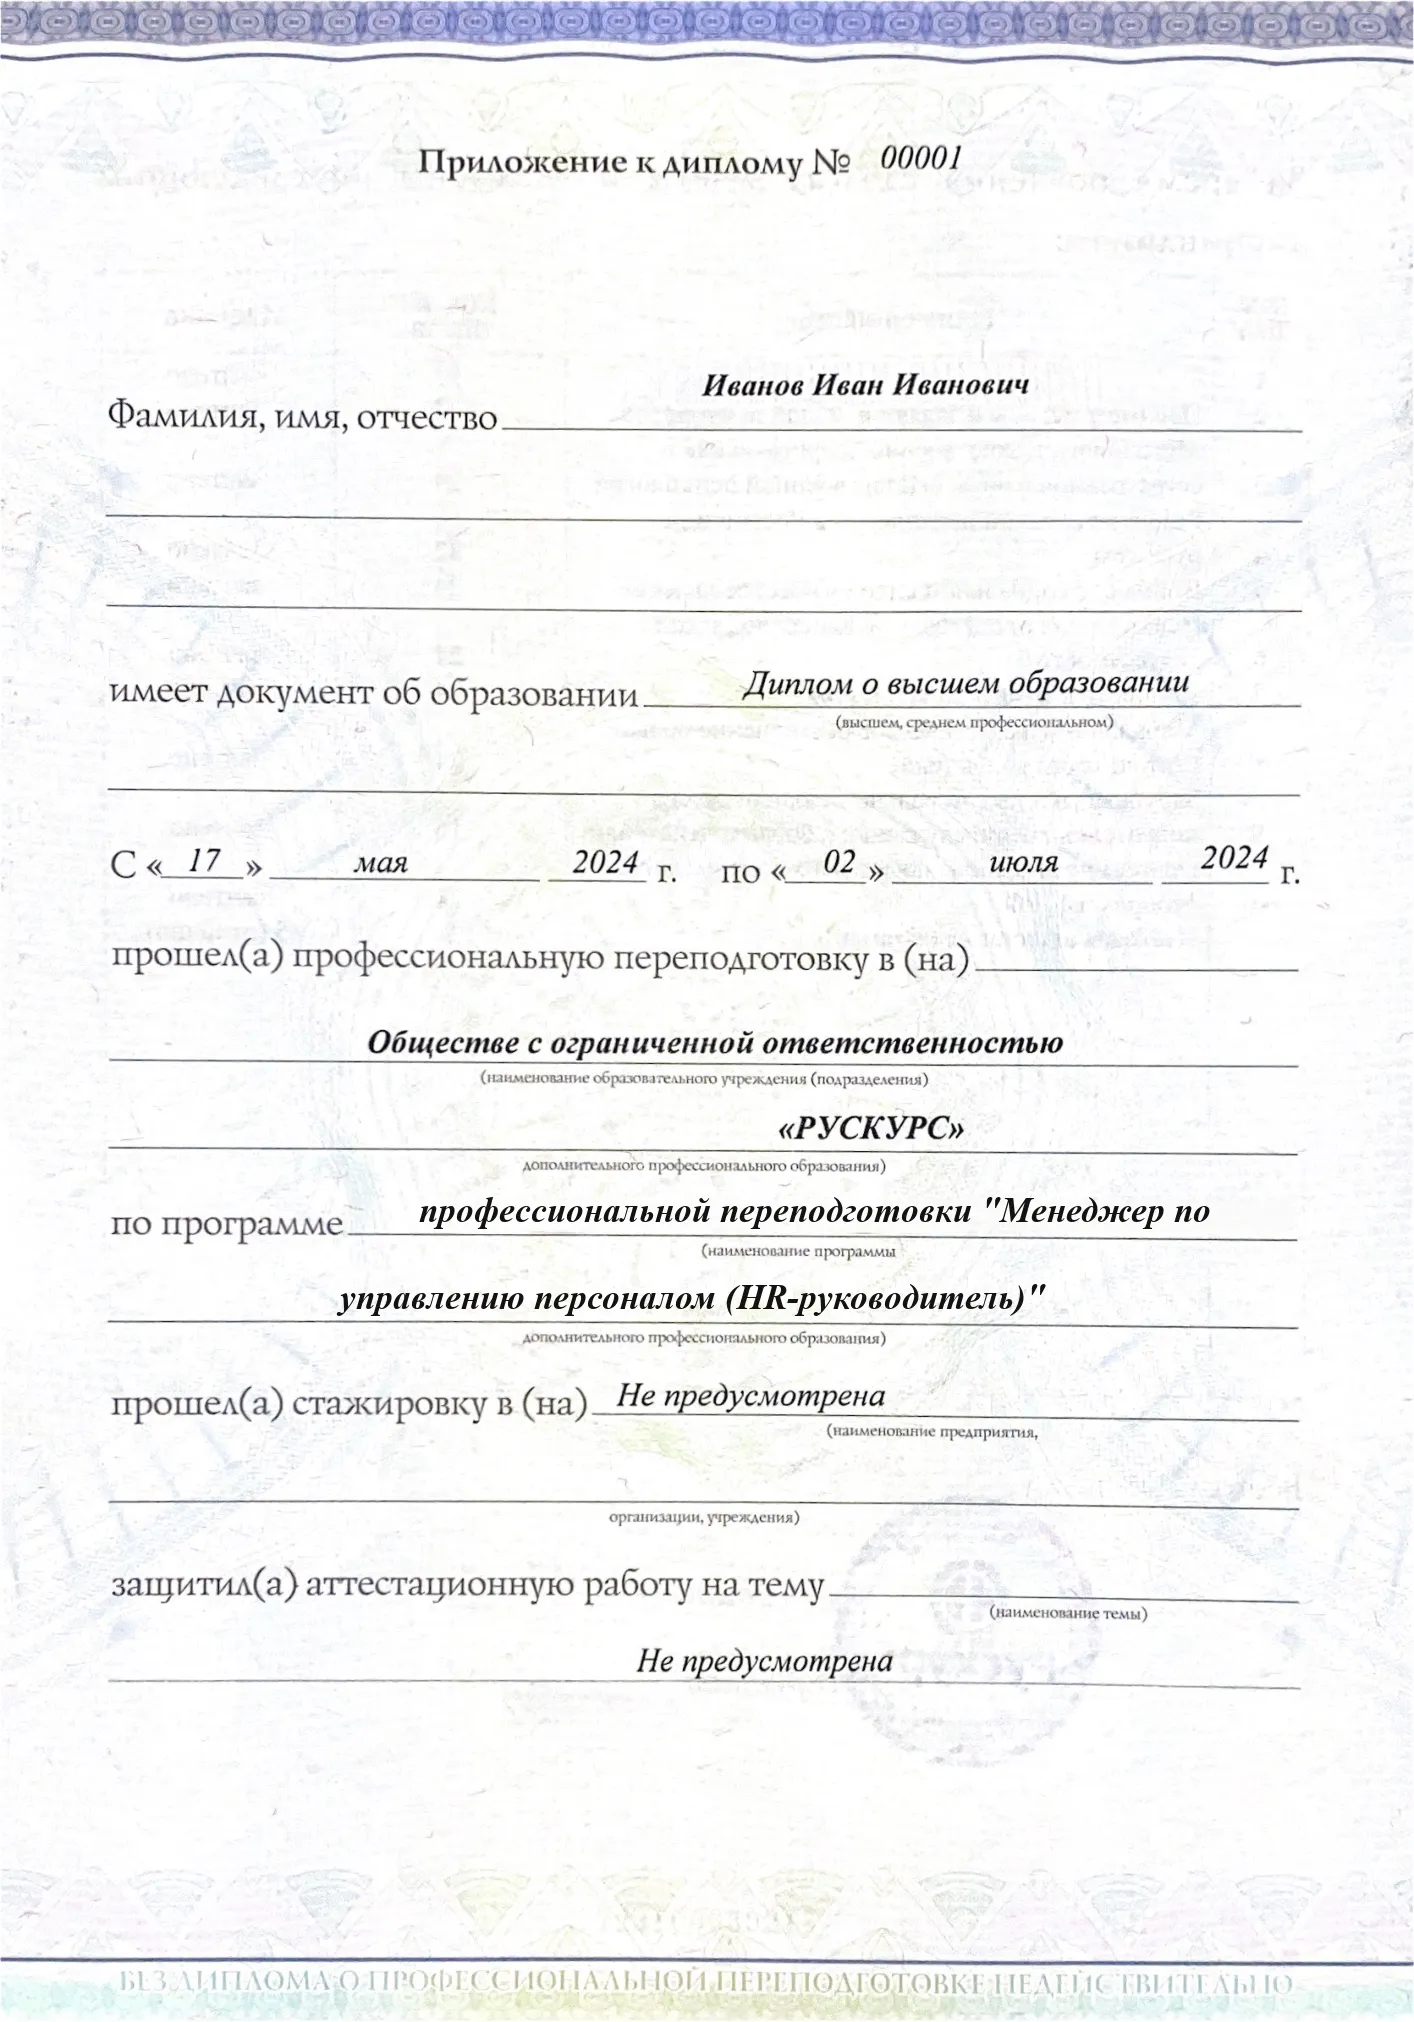 Приложение к диплому № 00001
Иванов Иван Иванович
Фамилия, имя, отчество
имеет документ об образовании Диплом о высшем образовании
(высшем, среднем профессиональном)
С « 17 » мая 2024 г. по « 02 » июля 2024 г.
прошел(а) профессиональную переподготовку в (на)
Обществе с ограниченной ответственностью
(наименование образовательного учреждения (подразделения)
«РУСКУРС»
дополнительного профессионального образования)
по программе профессиональной переподготовки "Менеджер по
(наименование программы
управлению персоналом (HR-руководитель)"
дополнительного профессионального образования)
прошел(а) стажировку в (на) Не предусмотрена
(наименование предприятия,
организации, учреждения)
защитил(а) аттестационную работу на тему
(наименование темы)
Не предусмотрена
БЕЗ ДИПЛОМА О ПРОФЕССИОНАЛЬНОЙ ПЕРЕПОДГОТОВКЕ НЕДЕЙСТВИТЕЛЬНО